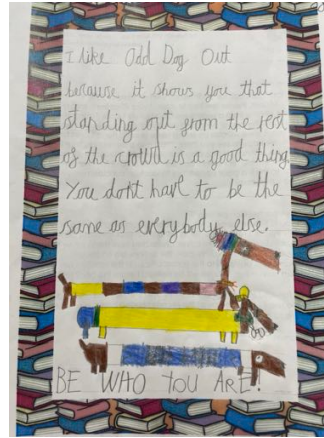 I like Odd Dog Out
because it shows you that
standing out from the rest
of the crowd is a good thing
You dont have to be the
same as everybody else.
BE WHO YOU ARE!